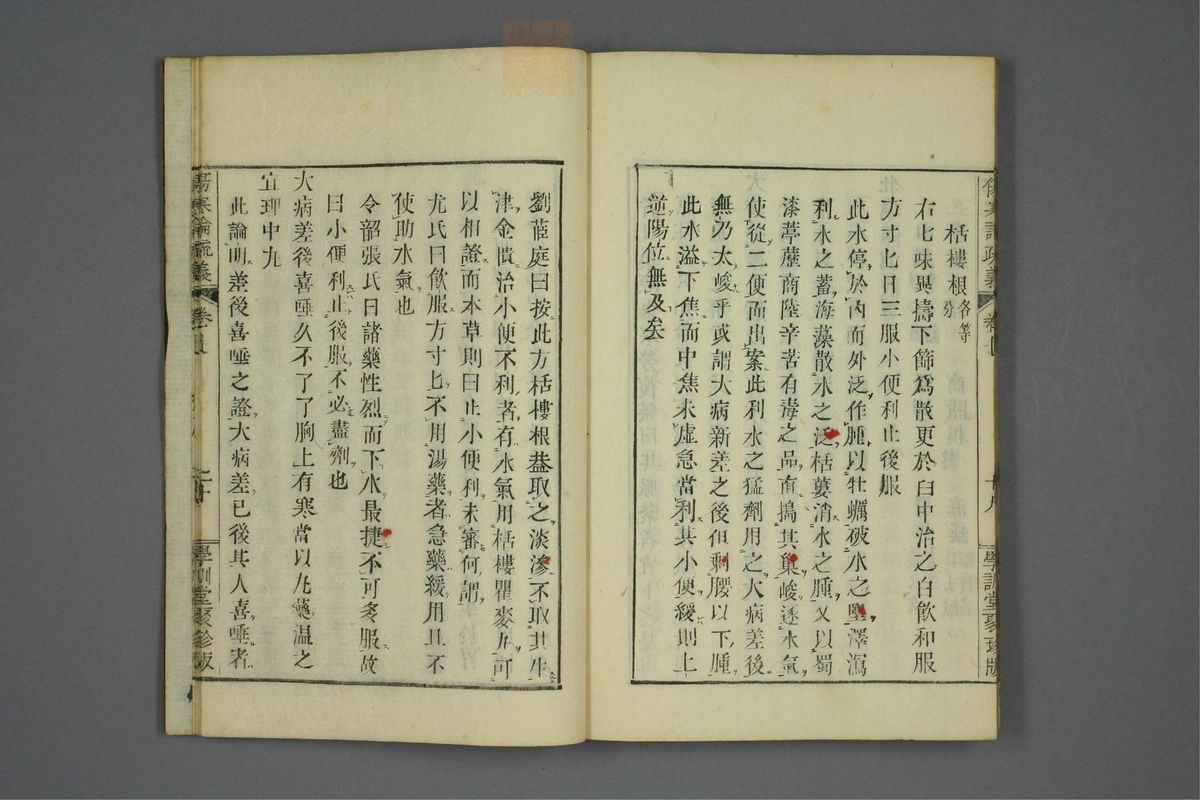 栝樓根各等分
右七味異擣下篩爲散更於臼中治之白飮和服
方寸匕日三服小便利止後服
此水停於內而外泛作腫以牡蠣破水之堅澤瀉
利水之蓄海藻散水之泛栝蔞消水之腫又以蜀
漆葶藶商陸辛苦有毒之品直搗其巢峻逐水氣
使從二便而出案此利水之猛劑用之大病差後
無乃太峻乎或謂大病新差之後但剩腰以下腫
此水溢下焦而中焦未虛急當利其小便緩則上
逆陽位無及矣
學訓堂聚珍版
劉茝庭曰按此方栝樓根葢取之淡滲不取其生
津金匱治小便不利者有水氣用栝樓瞿麥丸可
以相證而本草則曰止小便利未審何謂
尤氏曰飮服方寸匕不用湯藥者急藥緩用且不
使助水氣也
令韶張氏曰諸藥性烈而下水最捷不可多服故
曰小便利止後服不必盡劑也
大病差後喜唾久不了了胸上有寒當以丸藥溫之
宜理中丸
此論明差後喜唾之證大病差已後其人喜唾者
傷寒論疏義
學訓堂聚珍版